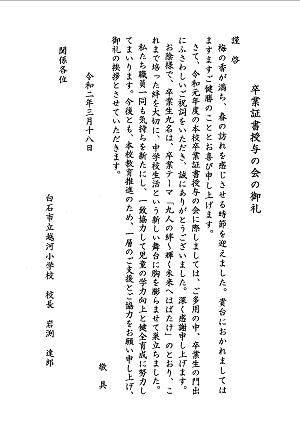 卒業証書授与の会の御礼
謹啓
梅の香が満ち、春の訪れを感じさせる時節を迎えました。貴台におかれましては
ますますご健勝のこととお喜び申し上げます。
さて、令和元年度の本校卒業証書授与の会に際しましては、ご多用の中、卒業生の門出
にふさわしいご祝詞をいただき、誠にありがとうございました。深く感謝申し上げます。
お陰様で、卒業生九名は、卒業テーマ「九人の絆~輝く未来へはばたけ」のとおり、こ
れまで培った絆を大切に、中学校生活という新しい舞台に胸を膨らませて巣立ちました。
私たち職員一同も気持ちを新たにし、一致協力して児童の学力向上と健全育成に努力し
てまいります。今後とも、本校教育推進のため、一層のご支援とご協力をお願い申し上げ、
御礼の挨拶とさせていただきます。
敬具
令和二年三月十八日
白石市立越河小学校 校長 岩渕 達郎
関係各位